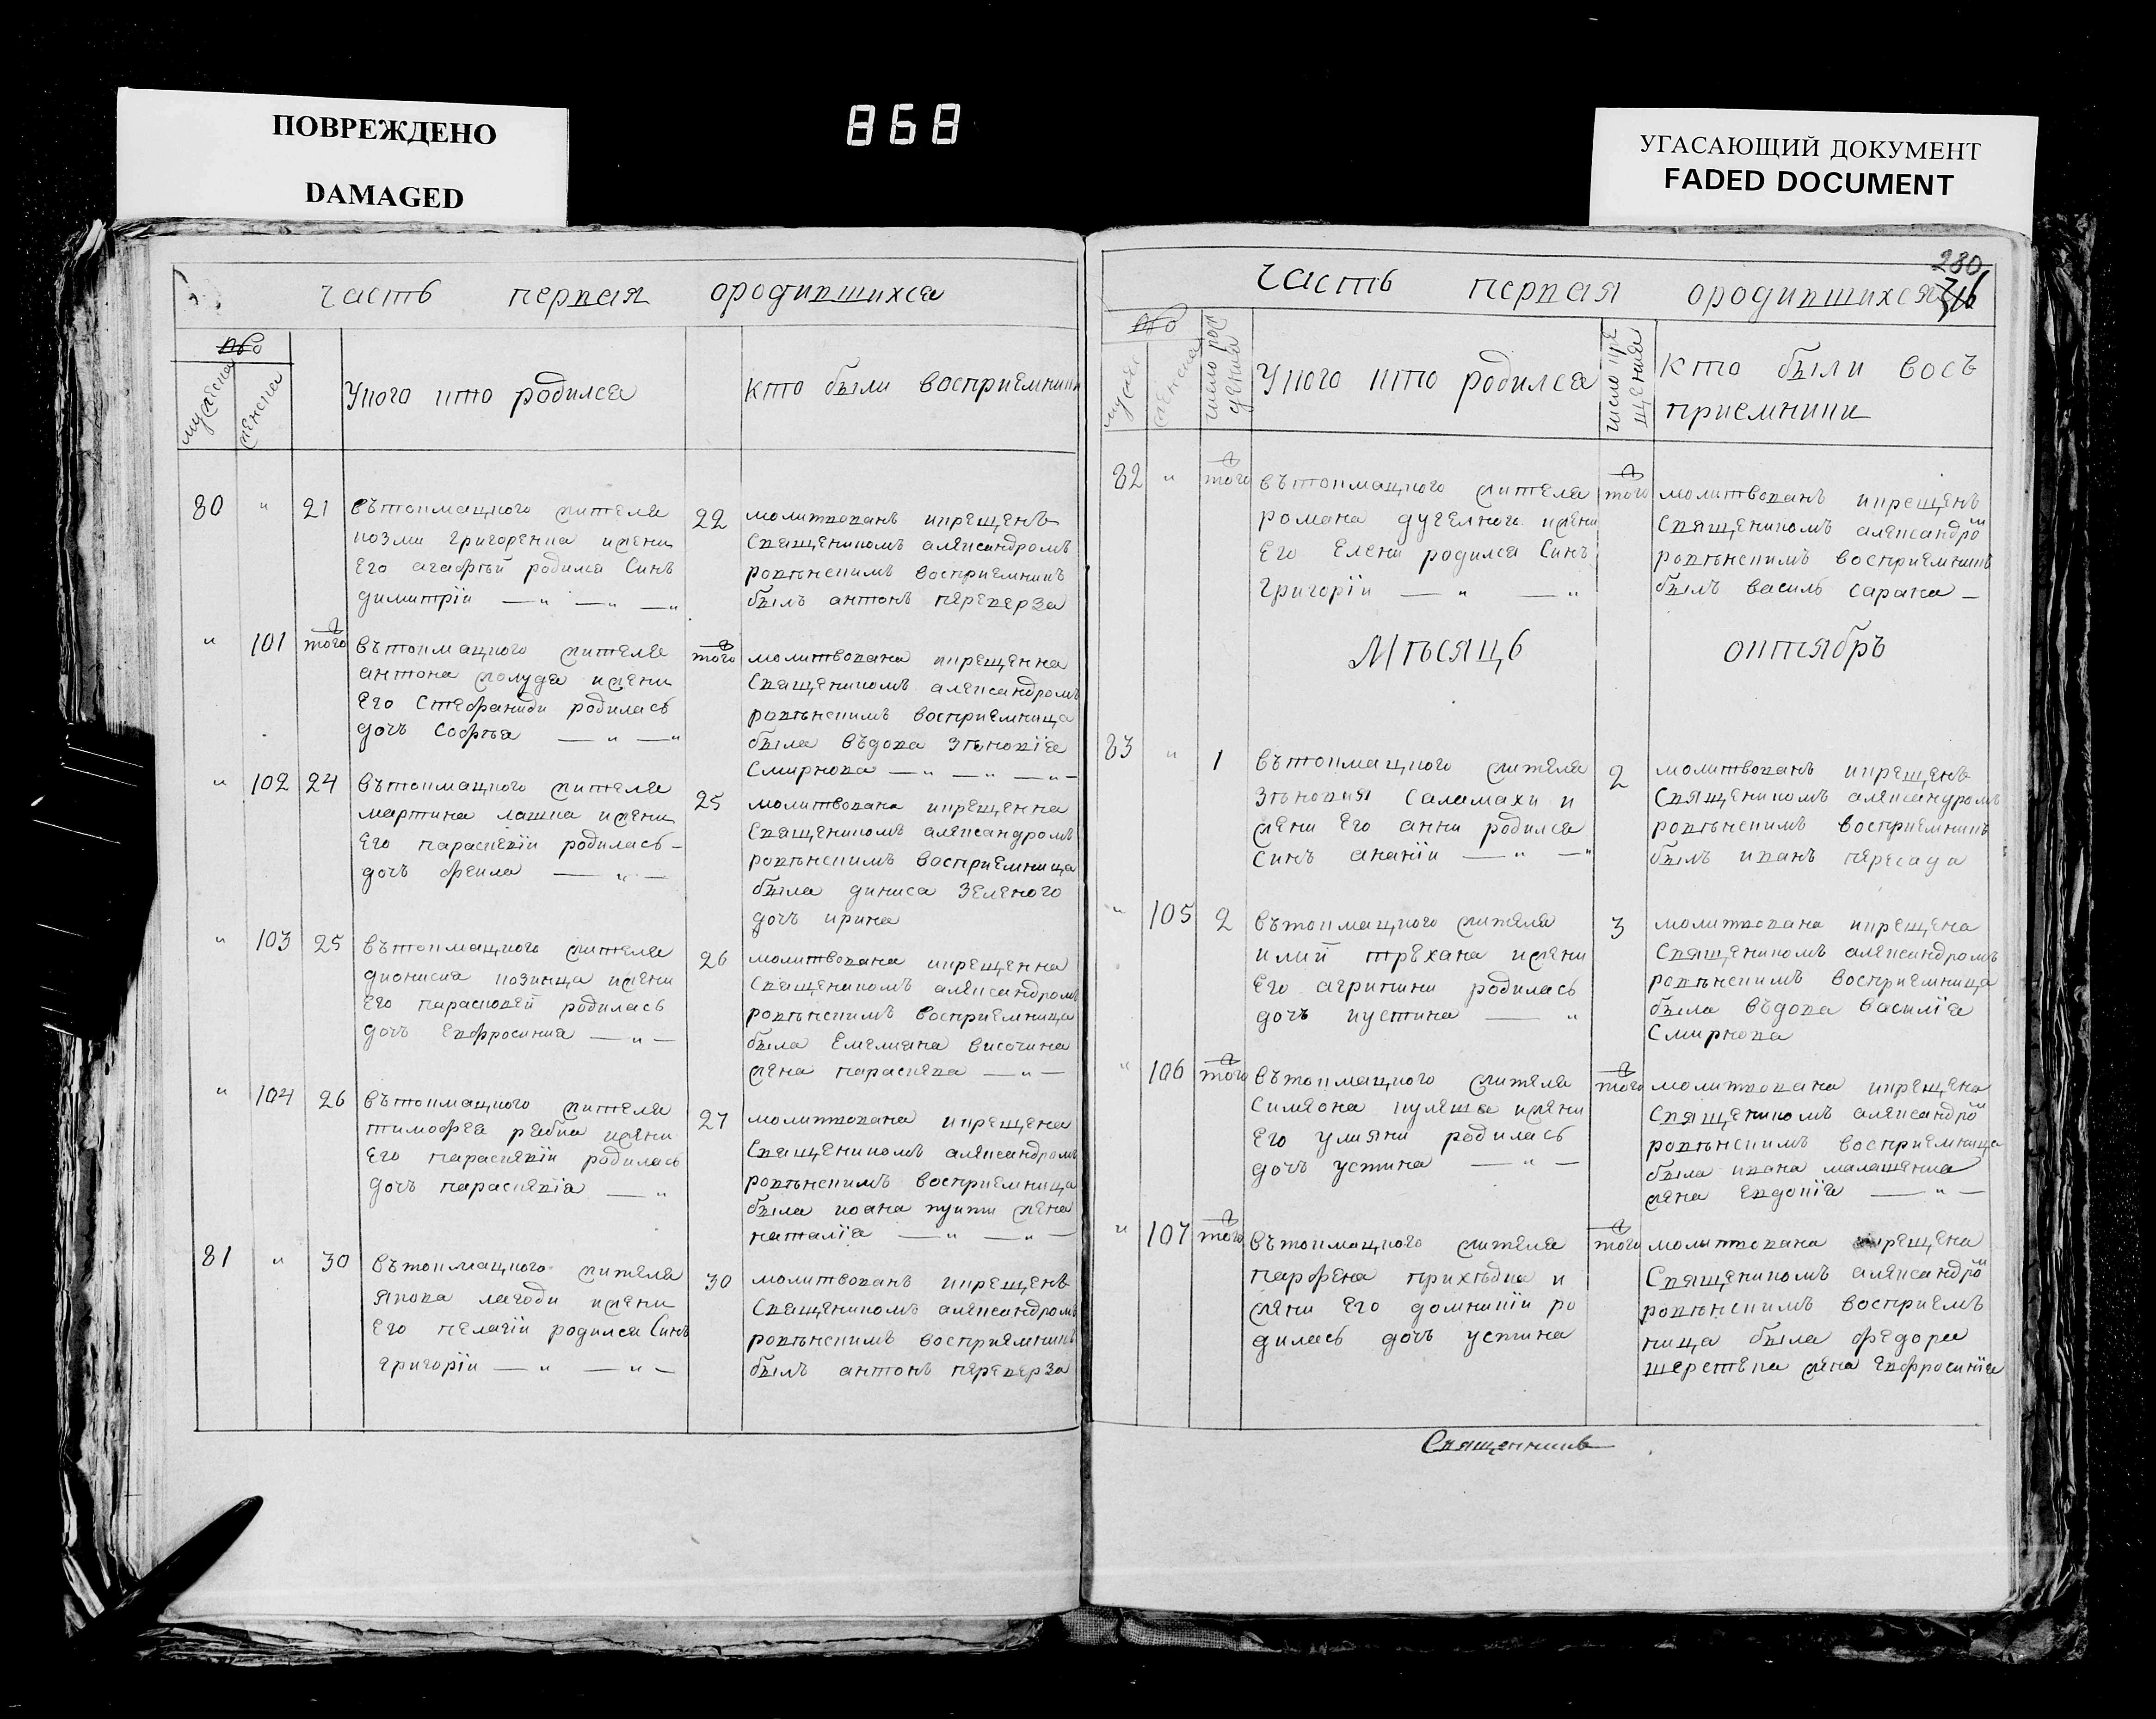 ПОВРЕЖДЕНО
DAMAGED
868
УГАСАЮЩИЙ ДОКУМЕНТ
FADED DOCUMENT
часть первая ородившихся
мужеска
женска
Укого кто родился
кто были восприемники
80 " 21
вътокмацкого жителя
козми григоренка ижени
Его агафѣй родился Синъ
димитрій — " — " — "
22
молитвованъ икрещенъ
Священикомъ александромъ
ровѣнскимъ восприемникъ
былъ антонъ перекерза
" 101 того
вътокмацкого жителя
антона голуда ижени
Его Стефаниди родилась
дочъ Софѣя — " — "
того
молитвована икрещенна
Священикомъ александромъ
ровѣнскимъ восприемница
была въдова Зѣновія
Смирнова — " — " — " —
" 102 24
вътокмацкого жителя
мартина лашка ижени
Его параскевіи родилась —
дочъ фекла — " —
25
молитвована икрещенна
Священикомъ александромъ
ровѣнскимъ восприемница
была диниса Зеленого
дочъ ирина
" 103 25
вътокмацкого жителя
дионисия козинца ижени
Его парасковей родилась
дочъ Евфросиния — " —
26
молитвована икрещенна
Священикомъ александромъ
ровѣнскимъ восприемница
была Емелияна височина
жена параскева — " —
" 104 26
вътокмацкого жителя
тимофея рябка ижени
Его параскевіи родилась
дочъ параскевія — "
27
молитвована икрещена
Священикомъ александромъ
ровѣнскимъ восприемница
была иоана жена
наталія — " — " —
81 " 30
вътокмацкого жителя
якова лагоди ижени
Его пелагіи родился Синъ
григоріи — " — " —
30
молитвованъ икрещенъ
Священикомъ александромъ
ровѣнскимъ восприемникъ
былъ антонъ перекерза
280
часть первая ородившихся
мужеска
женска
число рож
дения
Укого кто родился
число кре
щения
кто были восъ
приемники
82 " того
вътокмацкого жителя
романа дугелного ижени
Его Елени родился Синъ
Григорій — " — "
того
молитвованъ икрещенъ
Священикомъ александро
ровѣнскимъ восприемникъ
былъ василь сарана —
Мѣсяцъ октябръ
83 " 1
вътокмацкого жителя
Зѣновия Саламахи и
жени Его анни родился
Синъ ананіи — " — "
2
молитвованъ икрещенъ
Священикомъ александромъ
ровѣнскимъ восприемникъ
былъ иванъ пересада
" 105 2
вътокмацкого жителя
илий трехана ижени
Его агрипини родилась
дочъ иустина — "
3
молитвована икрещена
Священикомъ александромъ
ровѣнскимъ восприемница
была въдова василія
Смирнова
" 106 того
вътокмацкого жителя
Симеона кулеша ижени
Его улияни родилась
дочъ устина — " —
того
молитвована икрещена
Священикомъ александро
ровѣнскимъ восприемница
была ивана малашенка
жена Евдокіа — " —
" 107 того
вътокмацкого жителя
парфена прихѣдка и
жени Его домникіи ро
дилась дочъ устина
того
молитвована икрещена
Священикомъ александро
ровѣнскимъ восприемъ
ница была федора
шерстека жена Евфросинія
Священникъ